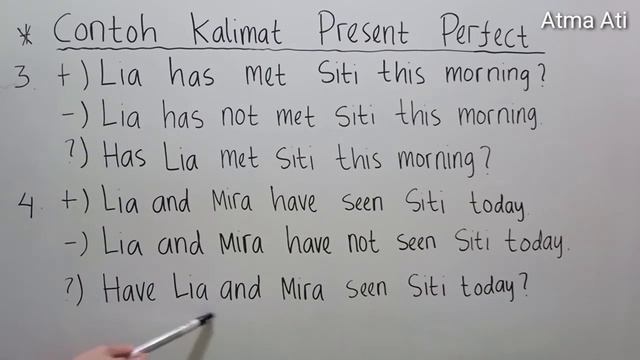 Atma Ati
* Contoh Kalimat Present Perfect
3. +) Lia has met Siti this morning?
-) Lia has not met Siti this morning.
?) Has Lia met Siti this morning?
4. +) Lia and Mira have seen Siti today.
-) Lia and Mira have not seen Siti today.
?) Have Lia and Mira seen Siti today?